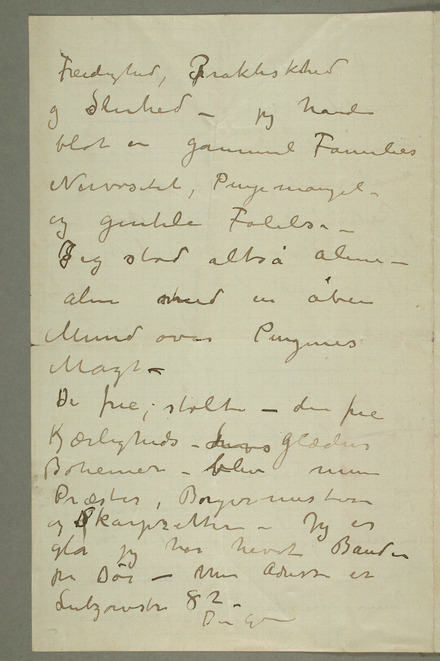 Freidighed, Praktiskhed
og Sluhed – jeg havde
blot en gammel Families
Nervøsitet, Pengemangel –
og gentile Følelser –
Jeg stod altså alene –
alene med en åben
Mund over Pengenes
Magt –
De frie, stolte – den frie
Kjærligheds – glædens
Bohemer – blev mine
Præster, Borgermestere
og Skarprettere – Jeg er
glad jeg har hævet Banden
på Dør – Min Adresse er
Lutzowstr 82 –
Din